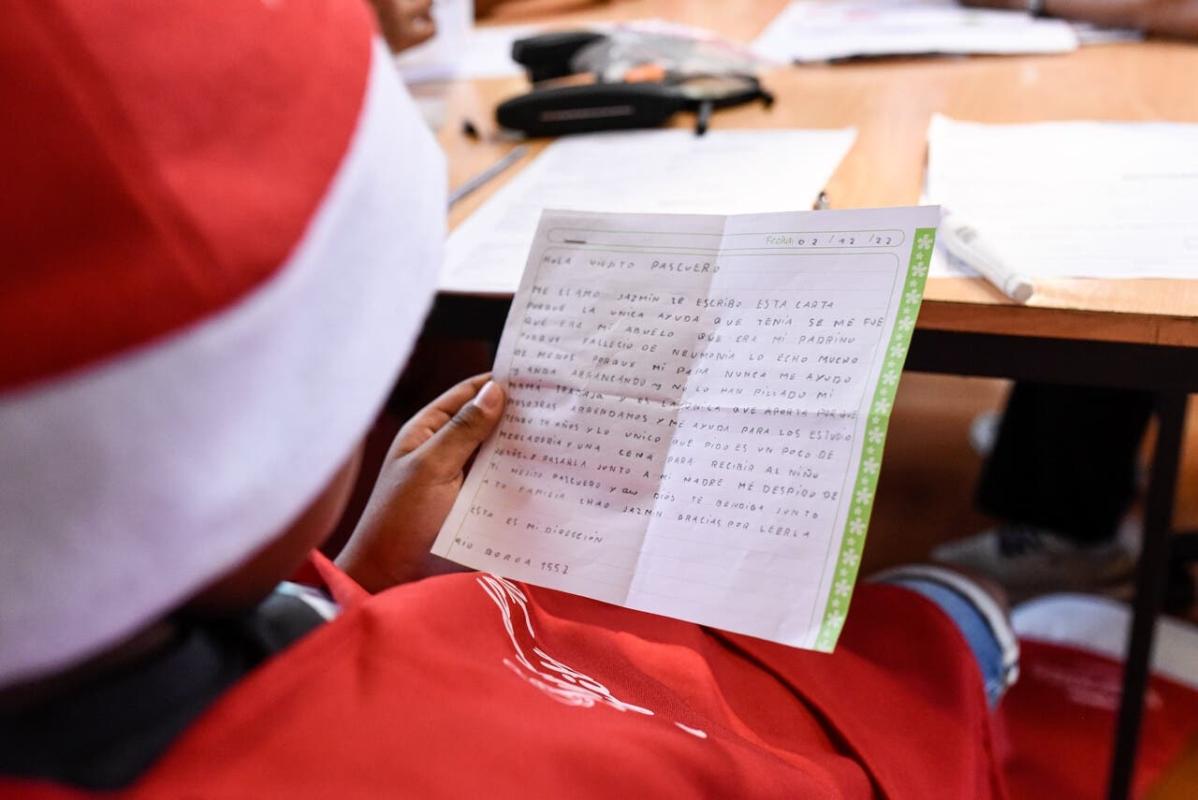 Fecha: 02 / 12 / 22
HOLA VIEJITO PASCUERO
ME LLAMO JAZMIN LE ESCRIBO ESTA CARTA
PORQUE LA UNICA AYUDA QUE TENÍA SE ME FUE
QUE ERA MI ABUELO QUE ERA MI PADRINO
PORQUE FALLECIO DE NEUMONÍA LO ECHO MUCHO
DE MENOS PORQUE MI PAPA NUNCA ME AYUDO
Y ANDA ARRANCANDO Y NO LO HAN PILLADO MI
MAMÁ TRABAJA Y ES LA UNICA QUE APORTA PORQUE
NOSOTRAS ARRENDAMOS Y ME AYUDA PARA LOS ESTUDIO
TENGO AÑOS Y LO UNICO QUE PIDO ES UN POCO DE
MERCADERÍA Y UNA CENA PARA RECIBIR AL NIÑO
PASARLA JUNTO A MI MADRE ME DESPIDO DE
TI VIEJITO PASCUERO Y QUE DIOS TE BENDIGA JUNTO
A TU FAMILIA CHAO JAZMIN GRACIAS POR LEERLA
ESTA ES MI DIRECCIÓN
RIO 1552